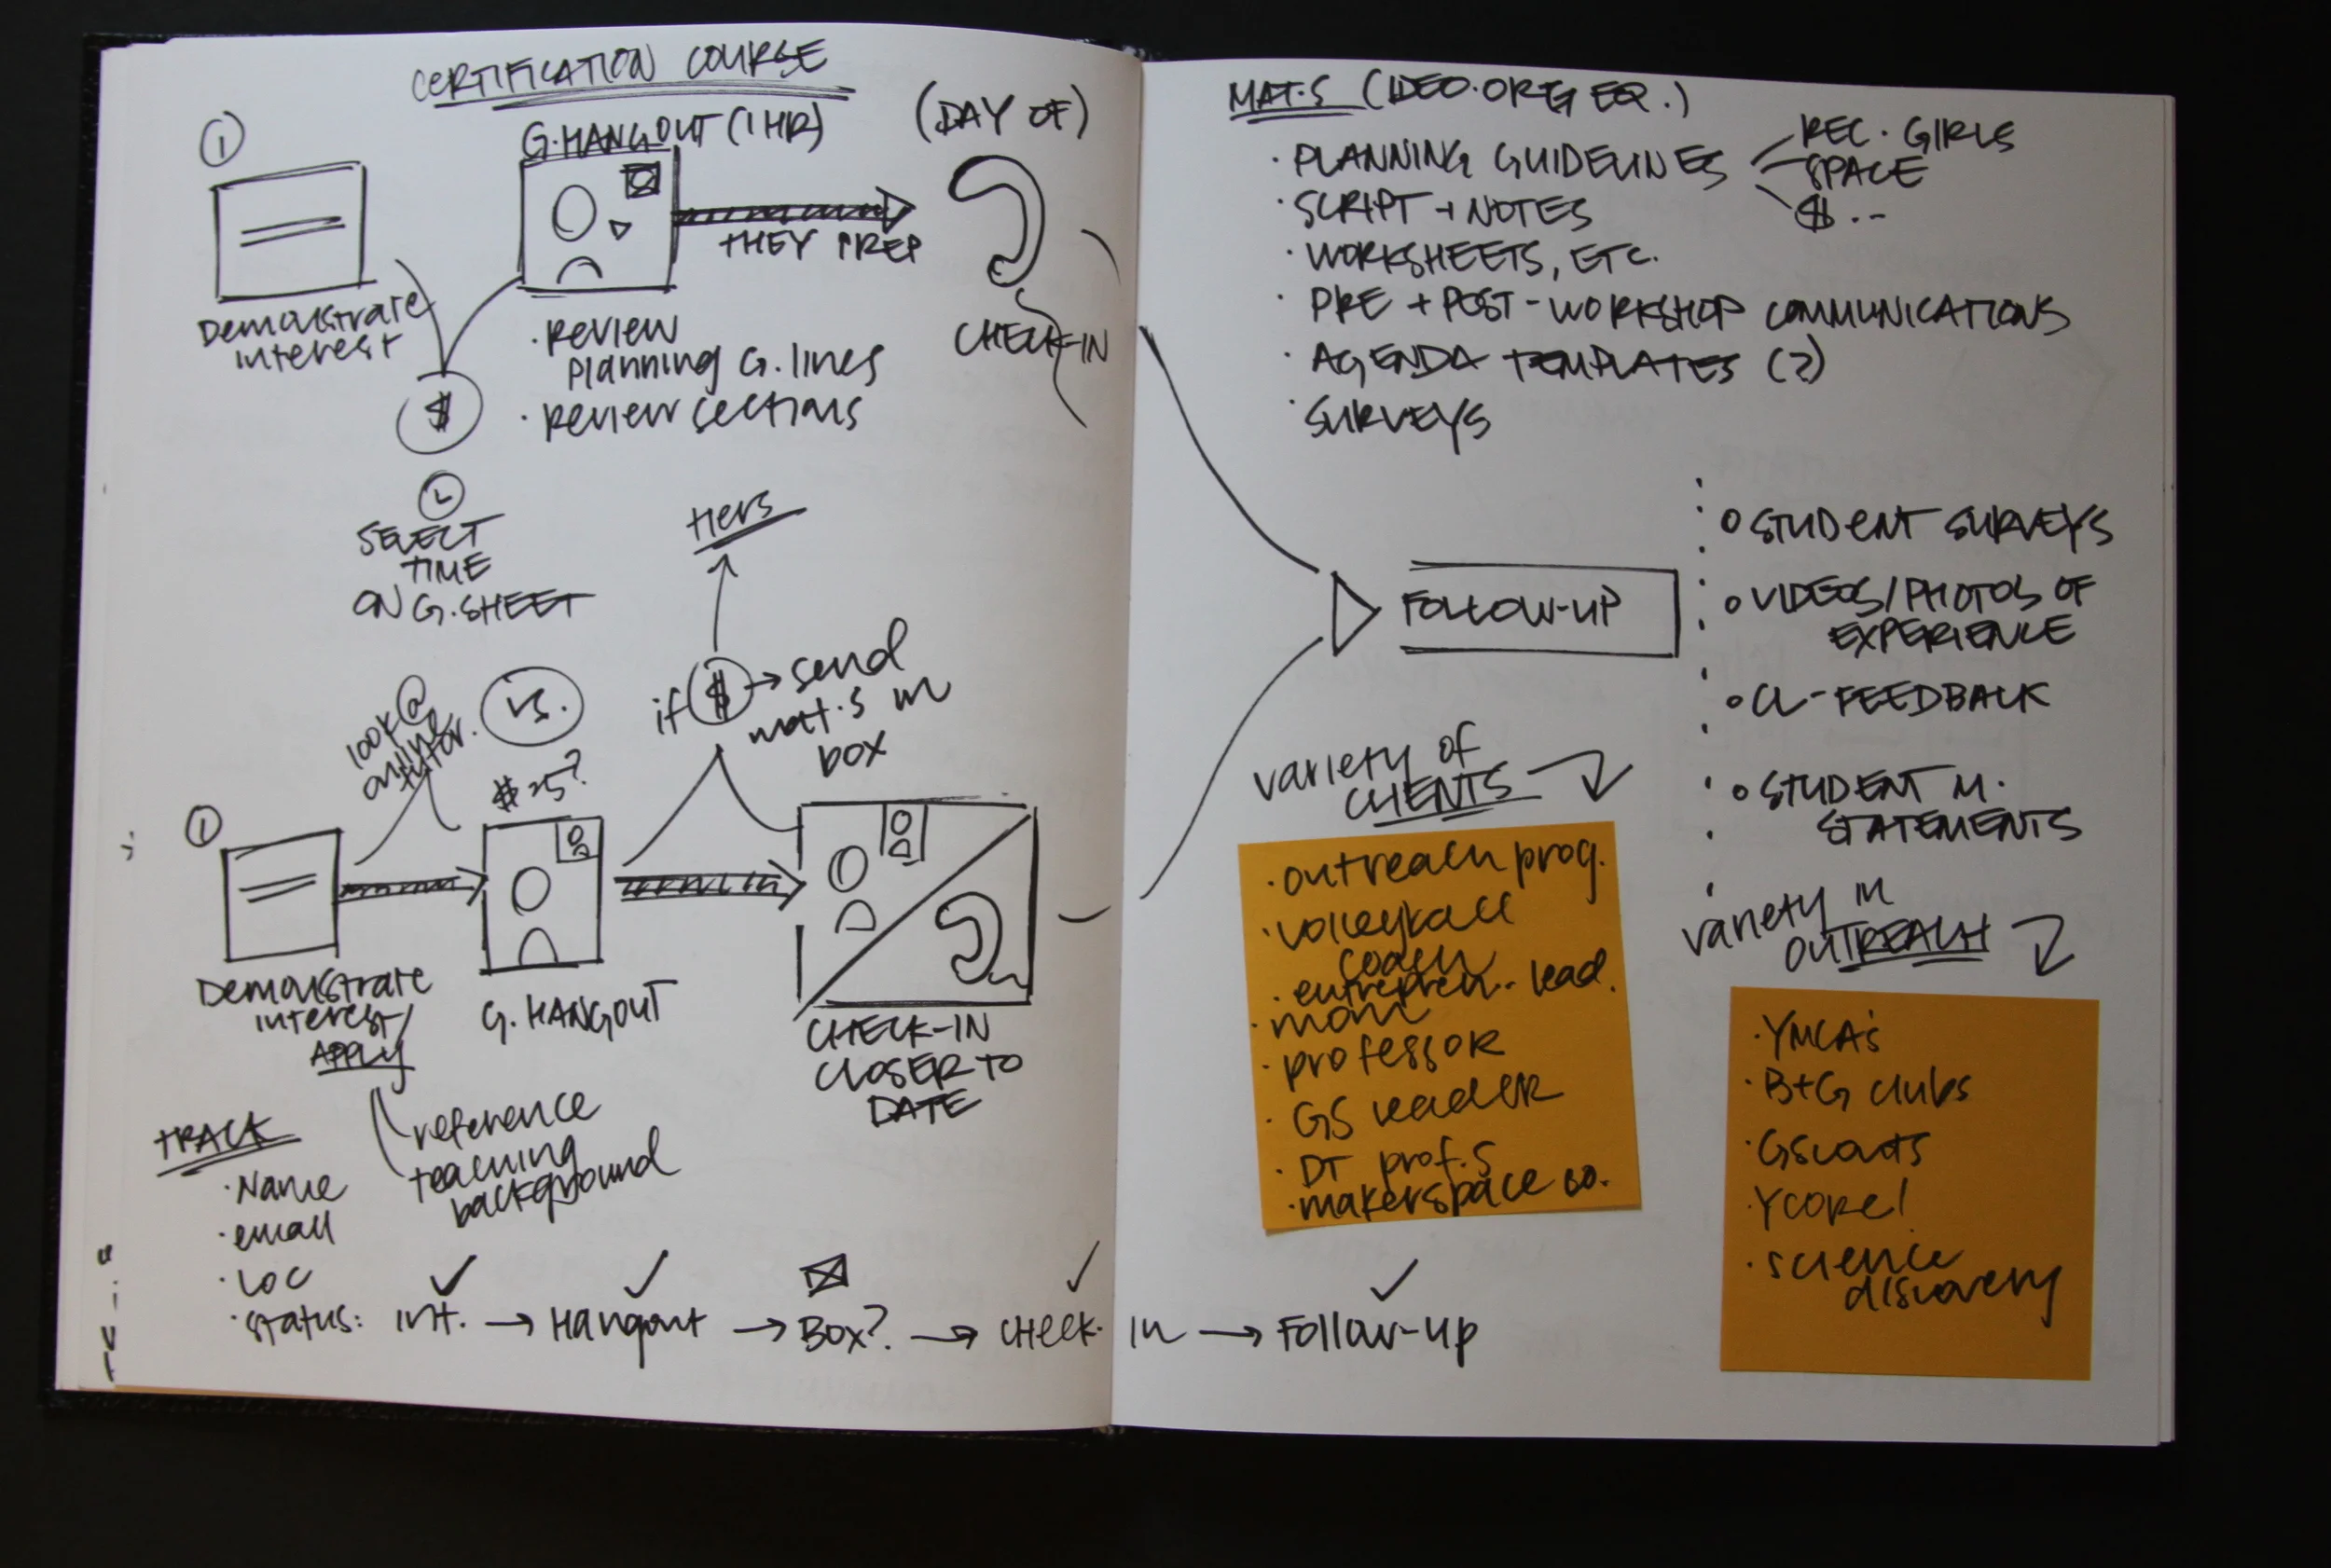 CERTIFICATION COURSE
①
G.HANGOUT (1 HR)
(DAY OF)
THEY PREP
Demonstrate
interest
• Review
planning G.lines
• Review sections
CHECK-IN
$
SELECT
TIME
ON G.SHEET
tiers
look @
online
tutor.
vs.
$25?
if $ → send
mat.s in
box
①
Demonstrate
interest/
APPLY
G. HANGOUT
CHECK-IN
CLOSER TO
DATE
reference
teaching
background
TRACK
• Name
• email
• LOC
• Status: Int. → Hangout → Box? → CHECK-IN → Follow-up
MAT.S (IDEO.ORG EQ.)
• PLANNING GUIDELINES
REC. GIRLS
SPACE
$ ..
• SCRIPT + NOTES
• WORKSHEETS, ETC.
• PRE + POST-WORKSHOP COMMUNICATIONS
• AGENDA TEMPLATES (?)
• SURVEYS
FOLLOW-UP
STUDENT SURVEYS
VIDEOS/PHOTOS OF
EXPERIENCE
CL-FEEDBACK
STUDENT M.
STATEMENTS
variety of
CLIENTS
• outreach prog.
• volleyball
coach
• entrepren.. lead.
• mom
• professor
• GS leader
• DT prof.s
• makerspace co.
variety in
OUTREACH
• YMCA's
• B+G clubs
• GScouts
• YCORE!
• science
discovery